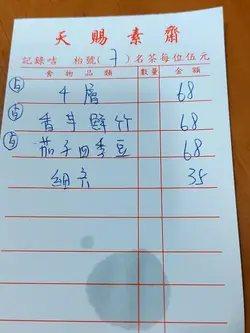 天賜素齋
記錄咭 枱號(7)名茶每位伍元
食物品類 數量 金額
4層 68
香芋 竹 68
茄子四季豆 68
細 35